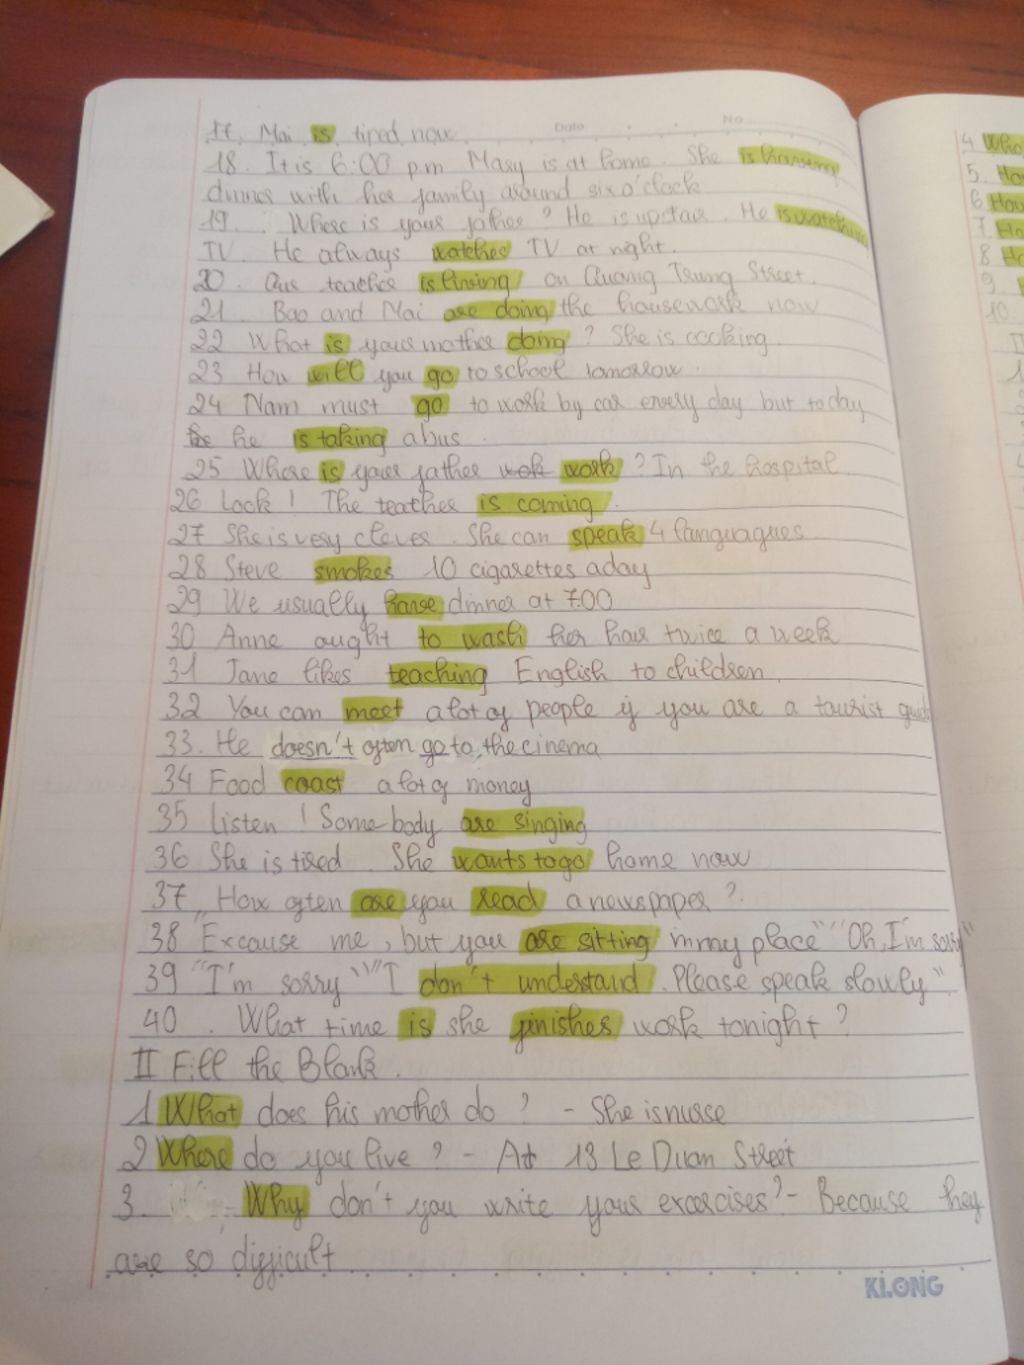 17. Mai is tired now
Date No
18. It is 6:00 p.m Mary is at home. She is having
dinner with her family around six o'clock
19. Where is your father? He is upstair. He is watching
TV. He always watches TV at night.
20. Our teacher is living on Quang Trung Street.
21. Bao and Mai are doing the housework now
22 What is your mother doing? She is cooking.
23 How will you go to school tomorrow.
24 Nam must go to work by car every day but today
he is taking a bus.
25 Where is your father work ? In the hospital
26 Look! The teacher is coming.
27 She is very clever. She can speak 4 languagues
28 Steve smokes 10 cigarettes a day
29 We usually have dinner at 7.00
30 Anne ought to wash her hair twice a week
31 Jane likes teaching English to children.
32 You can meet a lot of people if you are a tourist guid
33. He doesn't often go to the cinema
34 Food coast a lot of money
35 Listen! Somebody are singing
36 She is tired. She wants to go home now
37, How often are you read a newspaper?
38 "Excause me, but you are sitting in my place" "Oh, I'm sorry"
39 "I'm sorry" "I don't understand. Please speak slowly"
40. What time is she finishes work tonight?
II Fill the Blank.
1 What does his mother do? - She is nurse
2 Where do you live? - At 13 Le Duan Street
3. Why don't you write your exercises? - Because they
are so difficult
KLONG
4 Who
5. Ho
6 How
7. Ho
8. Ho
9.
10.